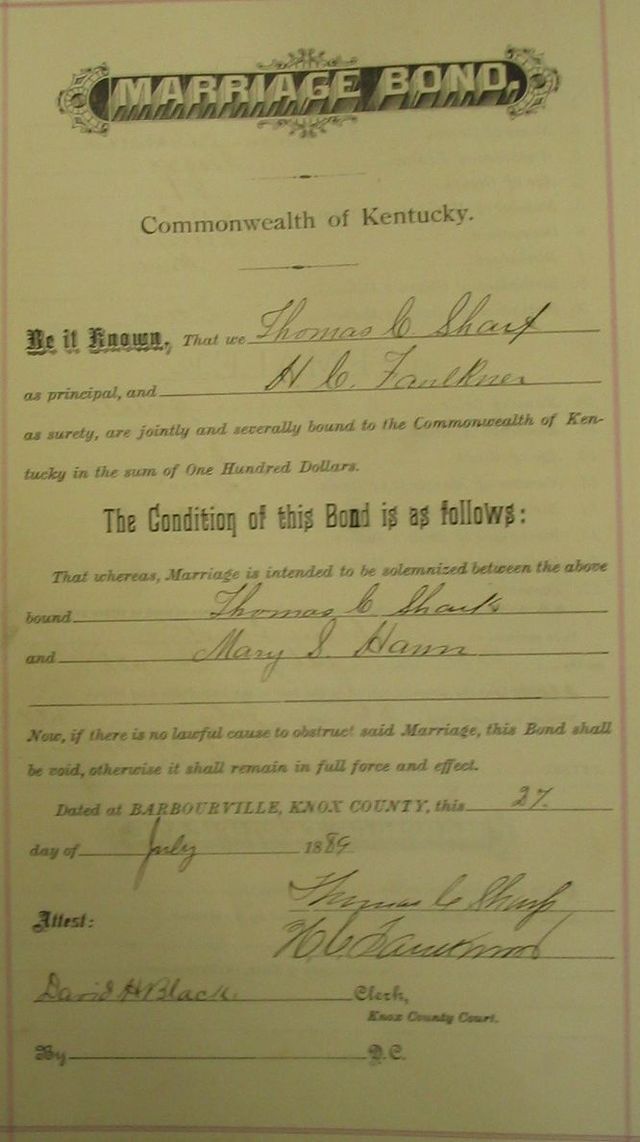 MARRIAGE BOND.
Commonwealth of Kentucky.
Be it Known, That we Thomas C Sharp
as principal, and H C. Faulkner
as surety, are jointly and severally bound to the Commonwealth of Ken-
tucky in the sum of One Hundred Dollars.
The Condition of this Bond is as follows:
That whereas, Marriage is intended to be solemnized between the above
bound Thomas C Sharp
and Mary S. Hamm
Now, if there is no lawful cause to obstruct said Marriage, this Bond shall
be void, otherwise it shall remain in full force and effect.
Dated at BARBOURVILLE, KNOX COUNTY, this 27.
day of July 1889
Thomas C Sharp
Attest:
H C Faulkner
David H Black. Clerk,
Knox County Court.
By D.C.